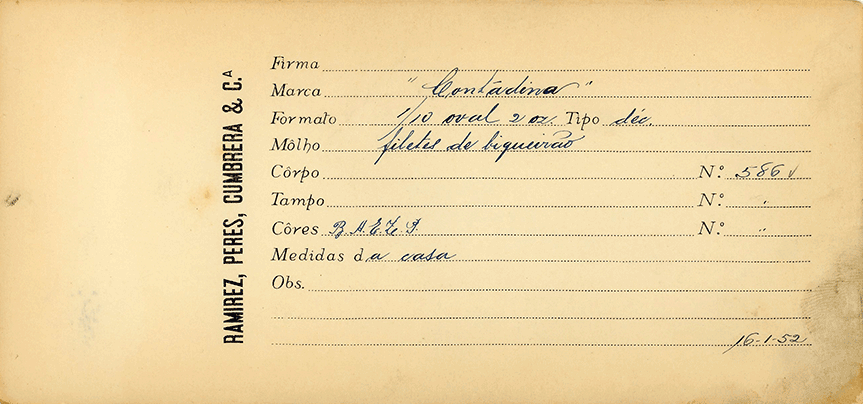 RAMIREZ, PERES, CUMBRERA & C.ᴬ
Firma
Marca "Contadina"
Formato 1/10 oval 2 oz. Tipo déc.
Môlho filetes de biqueirão
Côrpo N.º 586
Tampo N.º "
Côres N.º "
Medidas da casa
Obs.
16-1-52